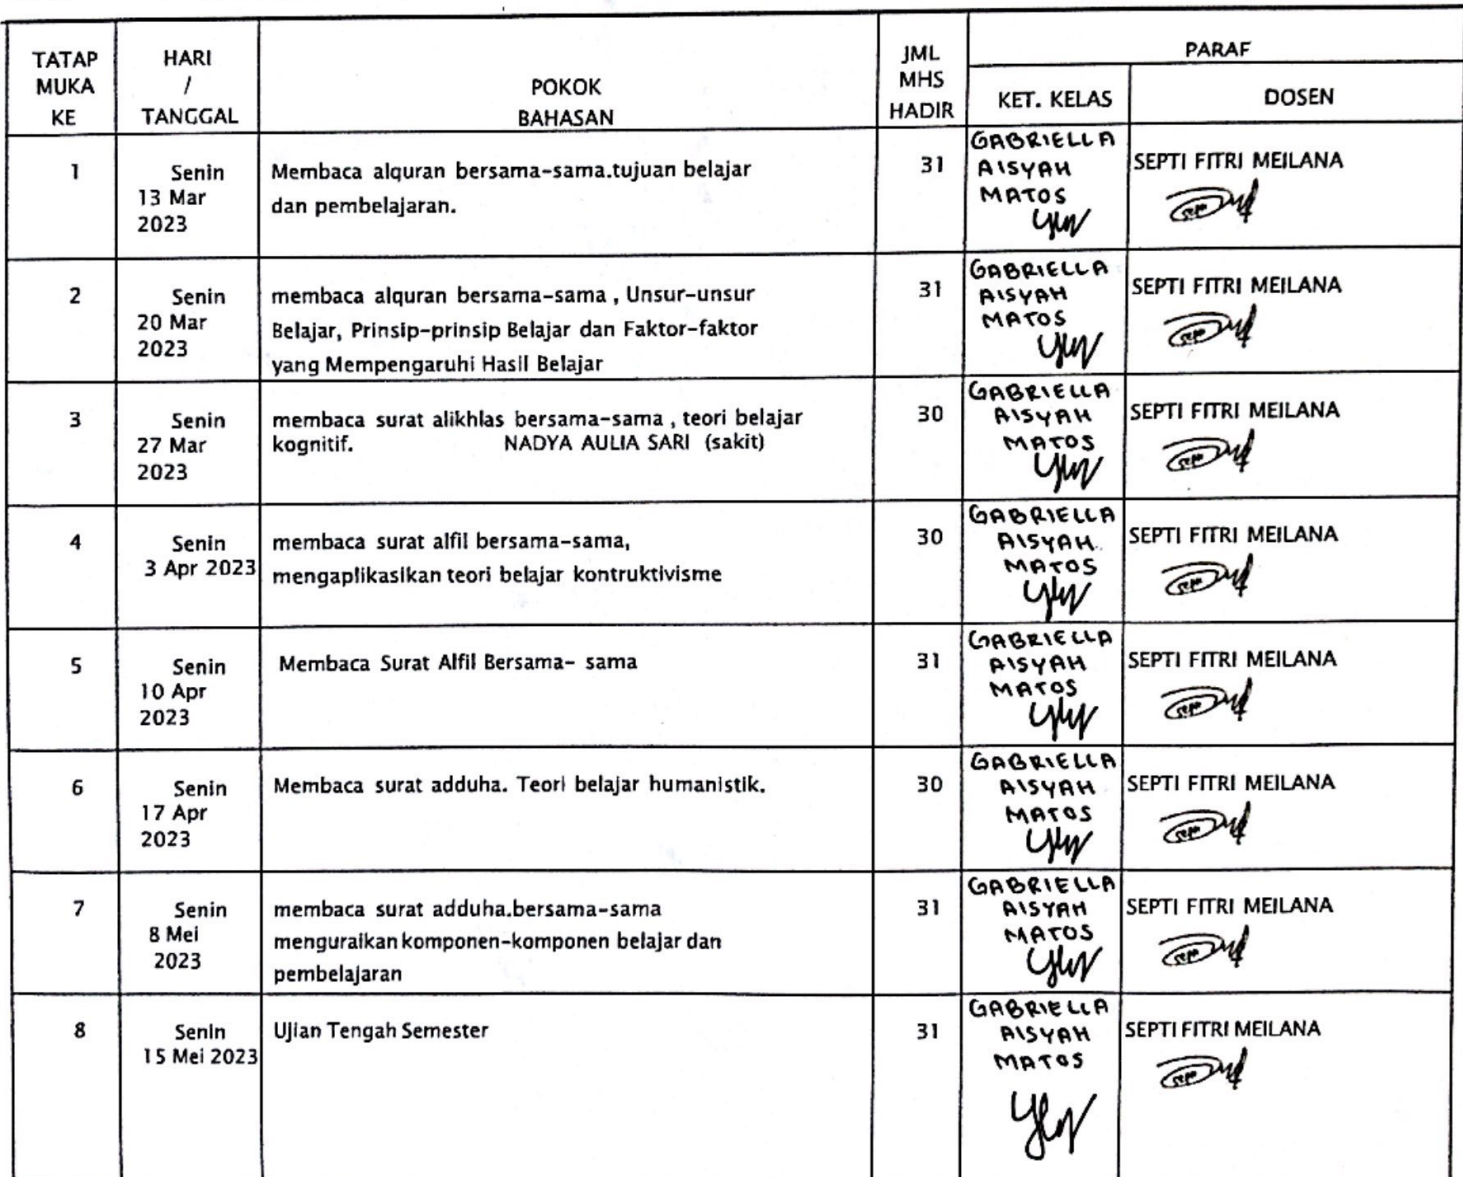 TATAP MUKA KE
HARI / TANGGAL
POKOK BAHASAN
JML MHS HADIR
PARAF
KET. KELAS
DOSEN
1
Senin
13 Mar
2023
Membaca alquran bersama-sama.tujuan belajar
dan pembelajaran.
31
GABRIELLA
AISYAH
MATOS
SEPTI FITRI MEILANA
2
Senin
20 Mar
2023
membaca alquran bersama-sama , Unsur-unsur
Belajar, Prinsip-prinsip Belajar dan Faktor-faktor
yang Mempengaruhi Hasil Belajar
31
GABRIELLA
AISYAH
MATOS
SEPTI FITRI MEILANA
3
Senin
27 Mar
2023
membaca surat alikhlas bersama-sama , teori belajar
kognitif. NADYA AULIA SARI (sakit)
30
GABRIELLA
AISYAH
MATOS
SEPTI FITRI MEILANA
4
Senin
3 Apr 2023
membaca surat alfil bersama-sama,
mengaplikasikan teori belajar kontruktivisme
30
GABRIELLA
AISYAH
MATOS
SEPTI FITRI MEILANA
5
Senin
10 Apr
2023
Membaca Surat Alfil Bersama- sama
31
GABRIELLA
AISYAH
MATOS
SEPTI FITRI MEILANA
6
Senin
17 Apr
2023
Membaca surat adduha. Teori belajar humanistik.
30
GABRIELLA
AISYAH
MATOS
SEPTI FITRI MEILANA
7
Senin
8 Mei
2023
membaca surat adduha.bersama-sama
menguraikan komponen-komponen belajar dan
pembelajaran
31
GABRIELLA
AISYAH
MATOS
SEPTI FITRI MEILANA
8
Senin
15 Mei 2023
Ujian Tengah Semester
31
GABRIELLA
AISYAH
MATOS
SEPTI FITRI MEILANA